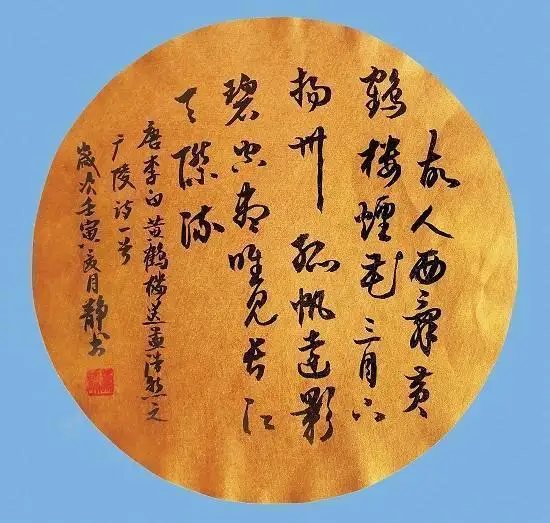 故人西辞黄
鹤楼煙花三月下
扬州孤帆远影
碧空尽唯见长江
天际流
唐李白黄鹤楼送孟浩然之
广陵诗一首
歲次壬寅亥月静书